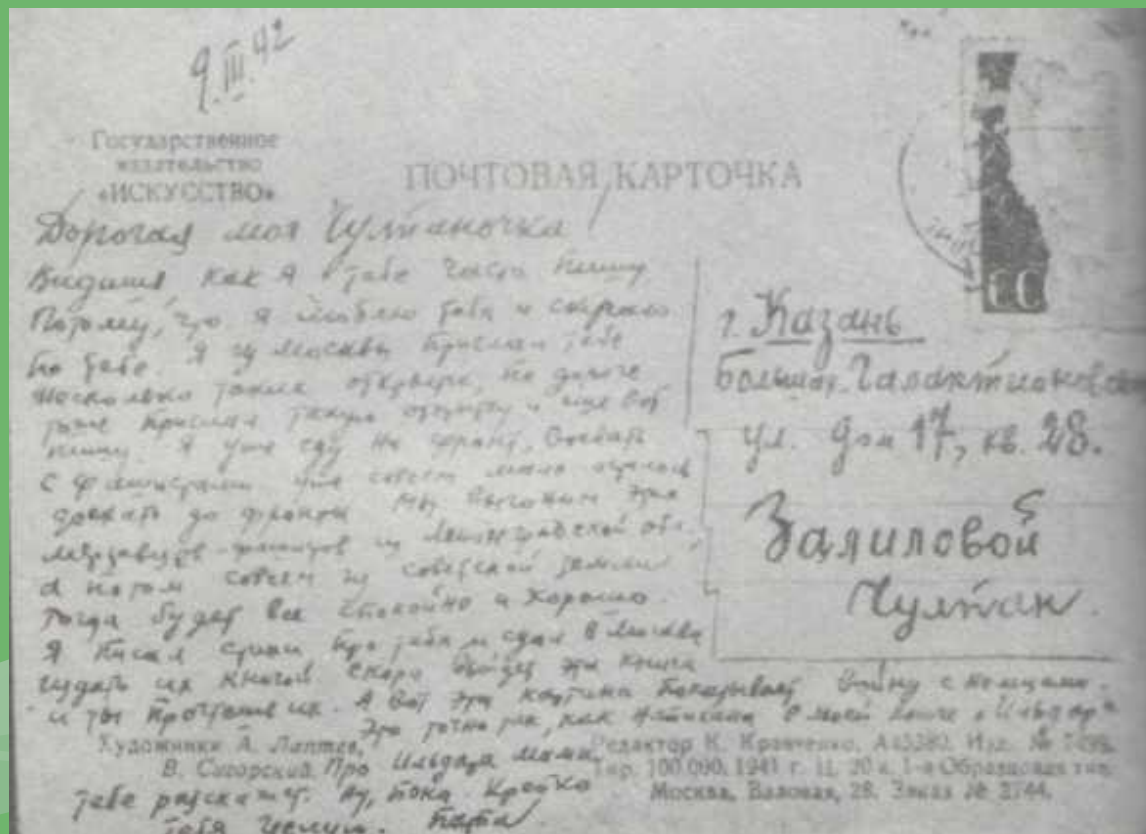 9.III.42
Государственное
издательство
«ИСКУССТВО»
ПОЧТОВАЯ КАРТОЧКА
Дорогая моя Чулпаночка
Видишь как я тебе часто пишу.
Потому, что я люблю тебя и скучаю
по тебе. Я из Москвы прислал тебе
несколько таких открыток, по дороге
тоже прислал такую открытку и еще вот
пишу. Я уже еду на фронт, воевать
с фашистами уже совсем мало осталось
доехать до фронта мы выгоним этих
мерзавцев-фашистов из Ленинградской обл,
а потом совсем из советской земли
тогда будет все спокойно и хорошо.
Я писал стихи про тебя и сдал в Москве
издать их книгой скоро выйдет эта книга
и ты прочтешь их. А вот эта картина показывает войну с немцами.
Это точно так, как написано в моей книге "Ильдар"
Про Ильдара мама
тебе расскажет. Ну, пока Крепко
тебя целую. Папа
г. Казань
Большая Галактионовская
ул. дом 17, кв. 28.
Залиловой
Чулпан.
Художники А. Лаптев,
В. Сигорский.
Редактор К. Кравченко. Изд. №
Тир. 100.000. 1941 г. Ц. 20 к. 1-я Образцовая тип.
Москва, Валовая, 28. Заказ № 2744.